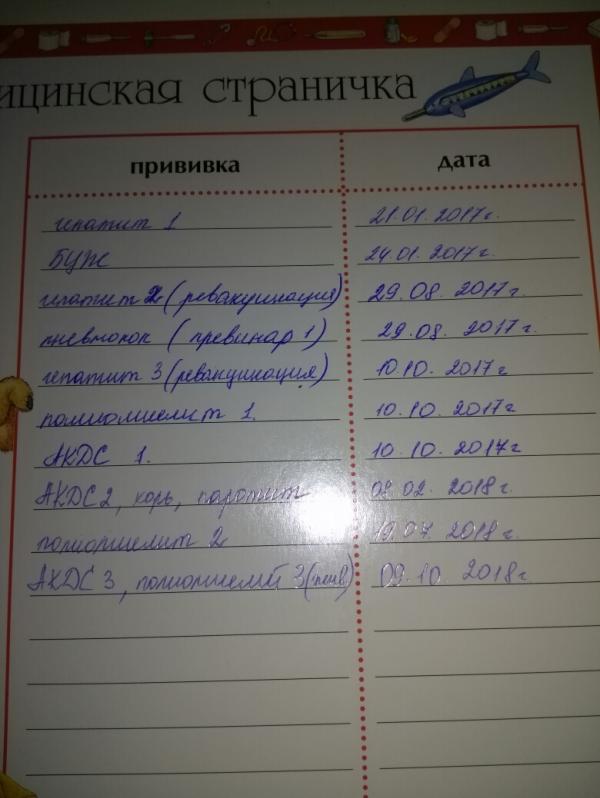 ицинская страничка
прививка дата
гепатит 1 21.01.2017г.
БЦЖ 24.01.2017г.
гепатит 2 (ревакцинация) 29.08.2017г
пневмокок (превинар 1) 29.08.2017г
гепатит 3 (ревакцинация) 10.10.2017г
полиомиелит 1. 10.10.2017г
АКДС 1. 10.10.2017г
АКДС 2, корь, паротит 08.02.2018г.
полиомиелит 2 19.07.2018г.
АКДС 3, полиомиелит 3 09.10.2018г